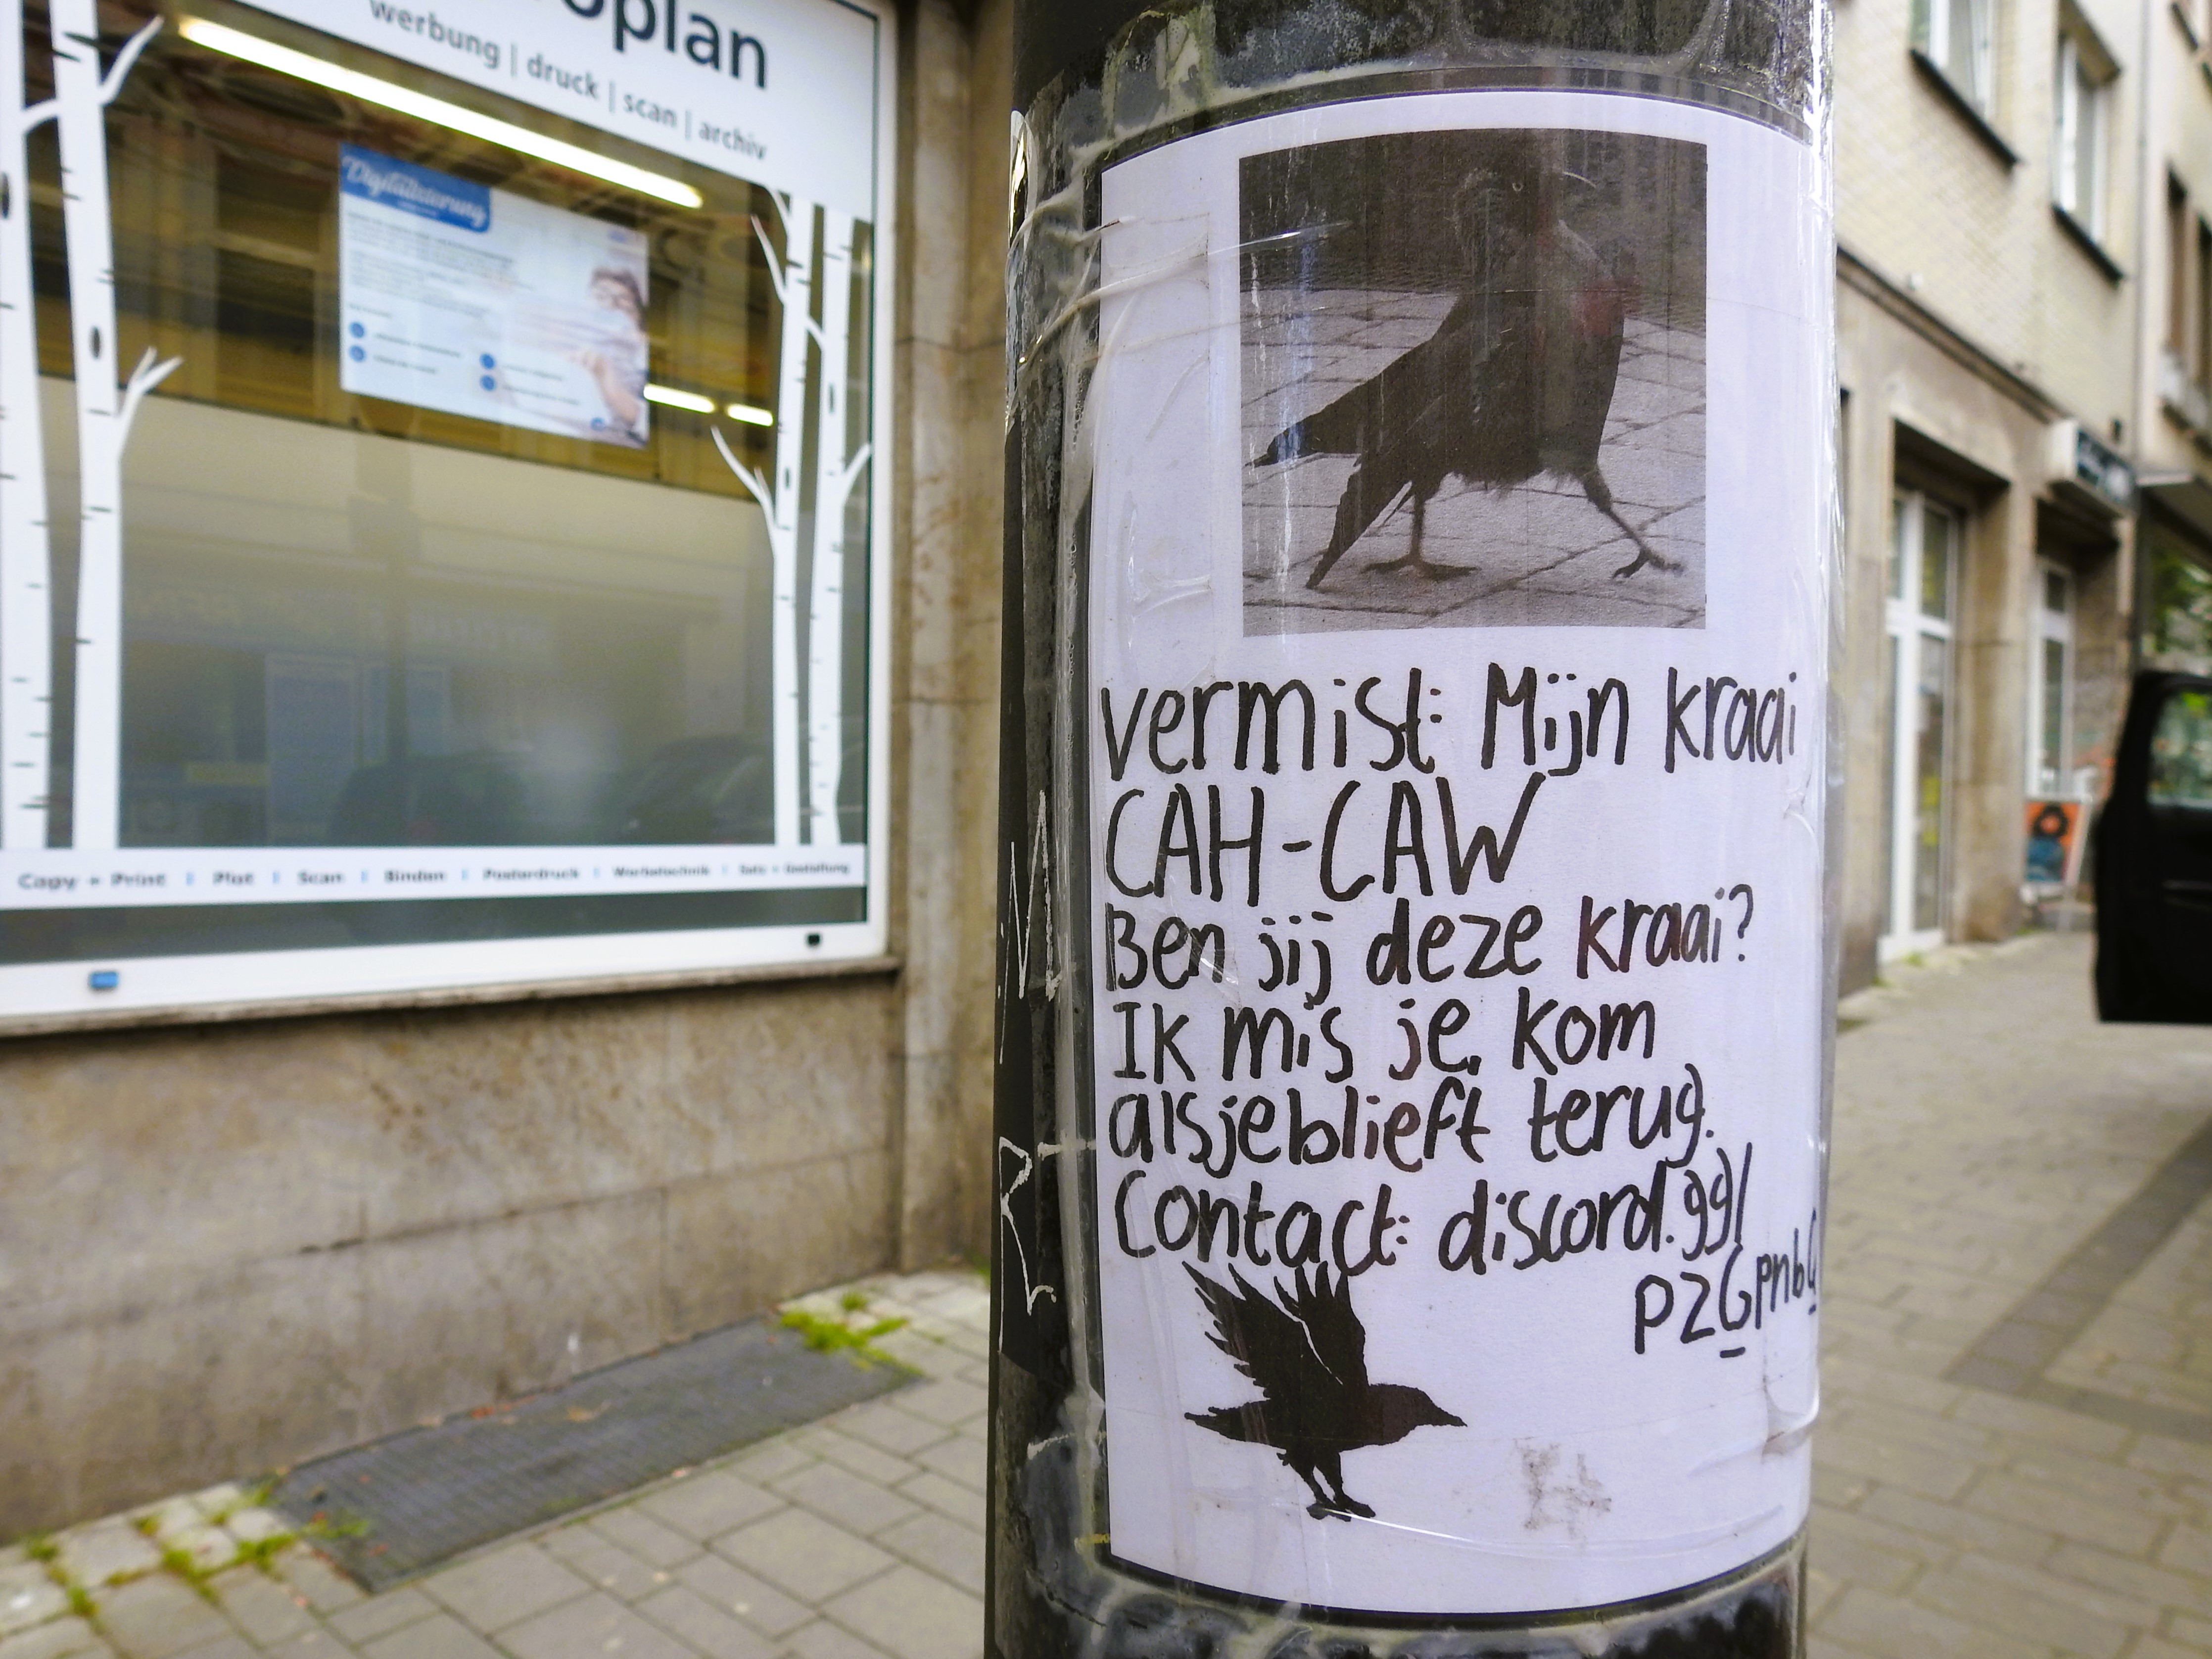 oplan
werbung | druck | scan | archiv
Digitalisierung
Copy + Print | Plot | Scan | Binden | Posterdruck | Werbetechnik | Satz + Gestaltung
vermist: Mijn kraai
CAH-CAW
Ben jij deze kraai?
Ik mis je, kom
alsjeblieft terug.
Contact: discord.gg/
pzGpnbG